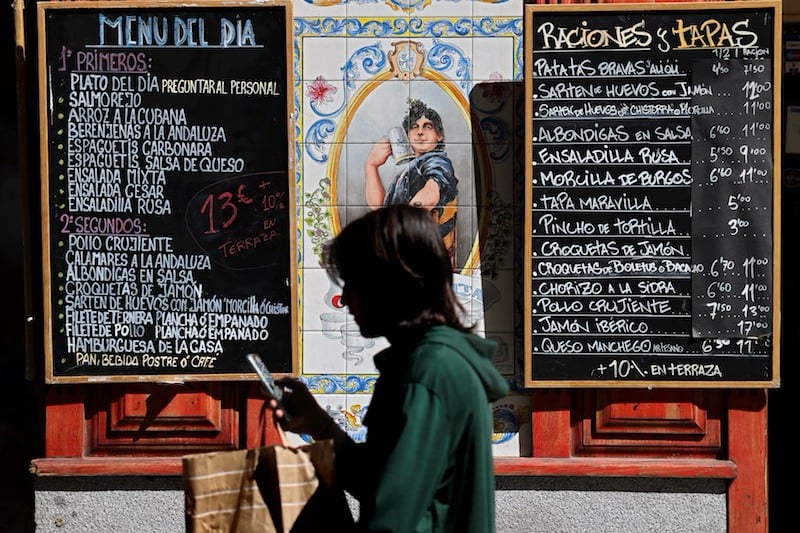 MENU DEL DÍA
1º PRIMEROS:
PLATO DEL DÍA PREGUNTAR AL PERSONAL
SALMOREJO
ARROZ A LA CUBANA
BERENJENAS A LA ANDALUZA
ESPAGUETIS CARBONARA
ESPAGUETIS SALSA DE QUESO
ENSALADA MIXTA
ENSALADA CESAR
ENSALADILLA RUSA
2º SEGUNDOS:
POLLO CRUJIENTE
CALAMARES A LA ANDALUZA
ALBONDIGAS EN SALSA
CROQUETAS DE JAMÓN
SARTEN DE HUEVOS CON JAMÓN MORCILLA Ó
FILETE DE TERNERA PLANCHA Ó EMPANADO
FILETE DE POLLO PLANCHA Ó EMPANADO
HAMBURGUESA DE LA CASA
PAN, BEBIDA POSTRE Ó CAFE
13€ +
10%
EN
TERRAZA
RACIONES y TAPAS
1/2 RACION
PATATAS BRAVAS Ó ALIOLI 4'50 7'50
SARTEN DE HUEVOS CON JAMÓN 11'00
SARTEN DE HUEVOS Ó CHISTORRA Ó MORCILLA 11'00
ALBONDIGAS EN SALSA 6'60 11'00
ENSALADILLA RUSA 5'50 9'00
MORCILLA DE BURGOS 6'60 11'00
TAPA MARAVILLA 5'00
PINCHO DE TORTILLA 3'00
CROQUETAS DE JAMÓN
CROQUETAS DE BOLETUS Ó BACALAO 6'70 11'00
CHORIZO A LA SIDRA 6'60 11'00
POLLO CRUJIENTE 7'50 13'00
JAMÓN IBÉRICO 17'00
QUESO MANCHEGO ARTESANO
+10% EN TERRAZA